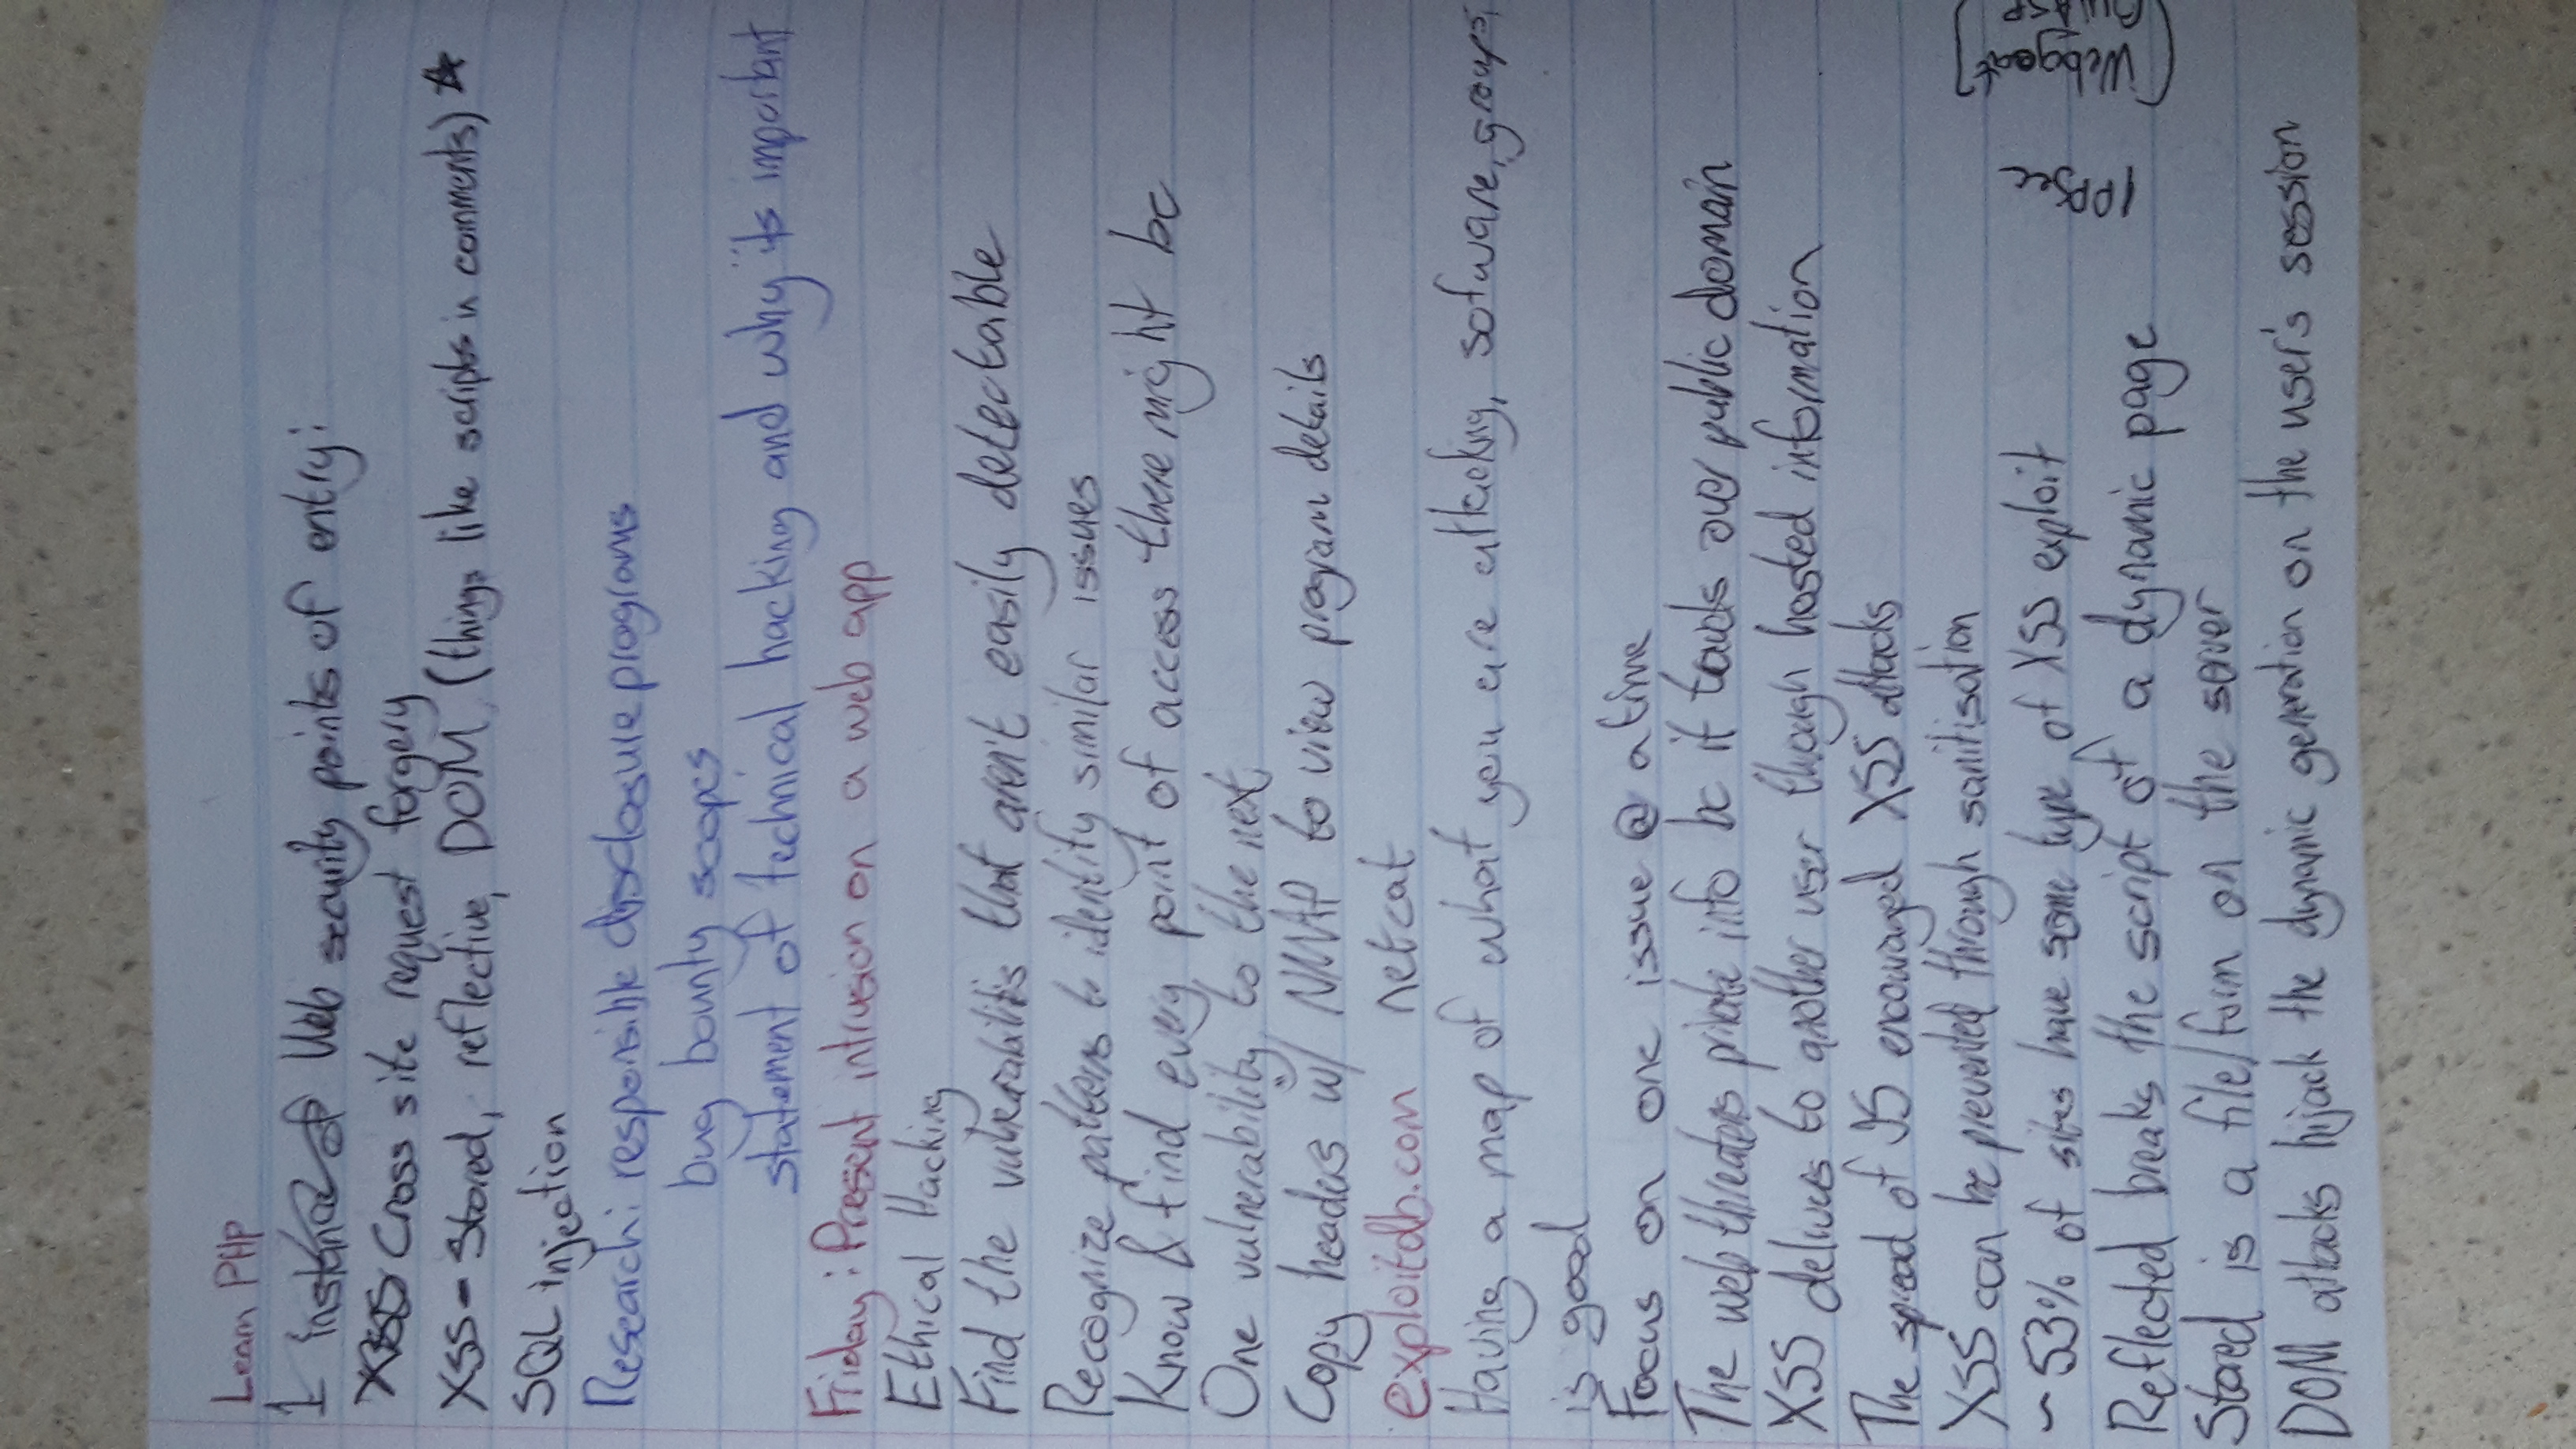 Learn PHP
1 instance of Web security points of entry:
XSS Cross site request forgery
XSS - Stored, reflective, DOM (things like scripts in comments) ☆
SQL injection
Research: responsible disclosure programs
bug bounty scopes
statement of technical hacking and why its important
Friday: Present intrusion on a web app
Ethical Hacking
Find the vulnerabilities that aren't easily detectable
Recognize patterns to identify similar issues
Know & find every point of access there might be
One vulnerability to the next
Copy headers w/ NMAP to view program details
exploitdb.com netcat
Having a map of what you are attacking, sofware, groups,
is good
Focus on one issue @ a time
The web threatens private info bc it travels over public domain
XSS delivers to another user though hosted information
The spread of JS encouraged XSS attacks
XSS can be prevented through sanitisation
~53% of sites have some type of XSS exploit
Reflected breaks the script of a dynamic page
Stored is a file/form on the server
DOM attacks hijack the dynamic generation on the user's session
IPPSec
(Webgoat)